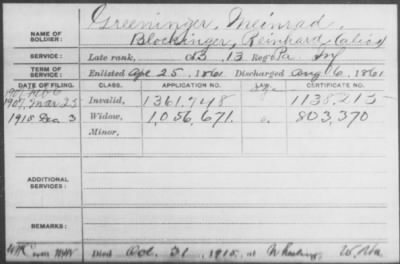 Greeninger, Meinrad,
NAME OF SOLDIER: Blockinger, Reinhard (alias)
SERVICE: Late rank, Co B, 13 Reg't Pa Inf
TERM OF SERVICE: Enlisted Apr 25, 1861 Discharged Aug 6, 1861
DATE OF FILING. CLASS. APPLICATION NO. LAW. CERTIFICATE NO.
1907, Mar 25 Invalid, 1361,748 1138,215
1918 Dec 3 Widow, 1,056,671 803,370
Minor,
ADDITIONAL SERVICES:
REMARKS:
Died Oct. 31, 1918, at Wheeling, W. Va